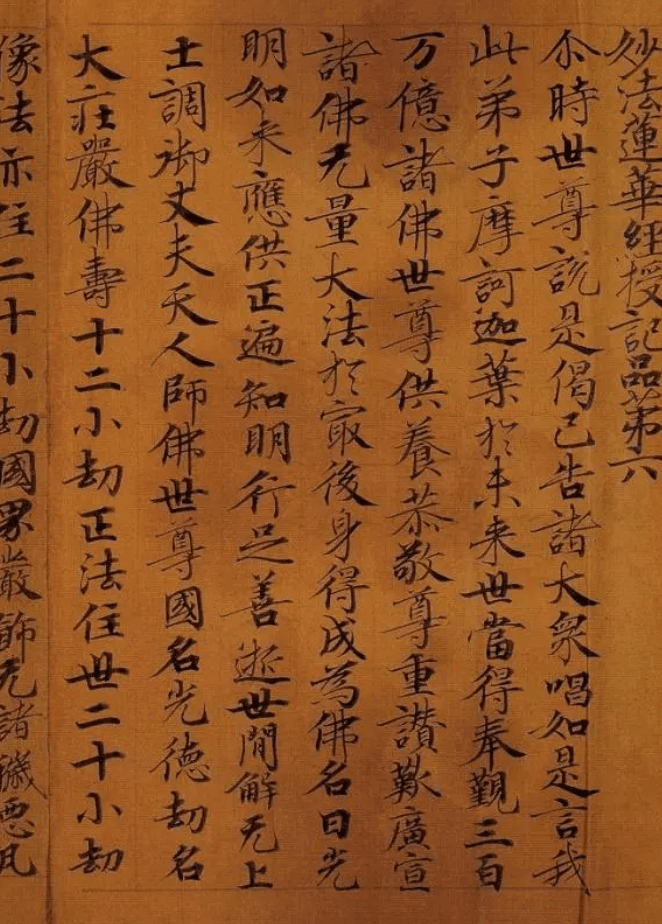 妙法蓮華經授記品第六
尒時世尊說是偈已告諸大衆唱如是言我
此弟子摩訶迦葉於未来世當得奉覲三百
万億諸佛世尊供養恭敬尊重讃歎廣宣
諸佛无量大法於㝡後身得成為佛名曰光
明如来應供正遍知明行足善逝世間解无上
士調御丈夫天人師佛世尊國名光德劫名
大莊嚴佛壽十二小劫正法住世二十小劫
像法亦住二十小劫國界嚴飾无諸穢惡凡